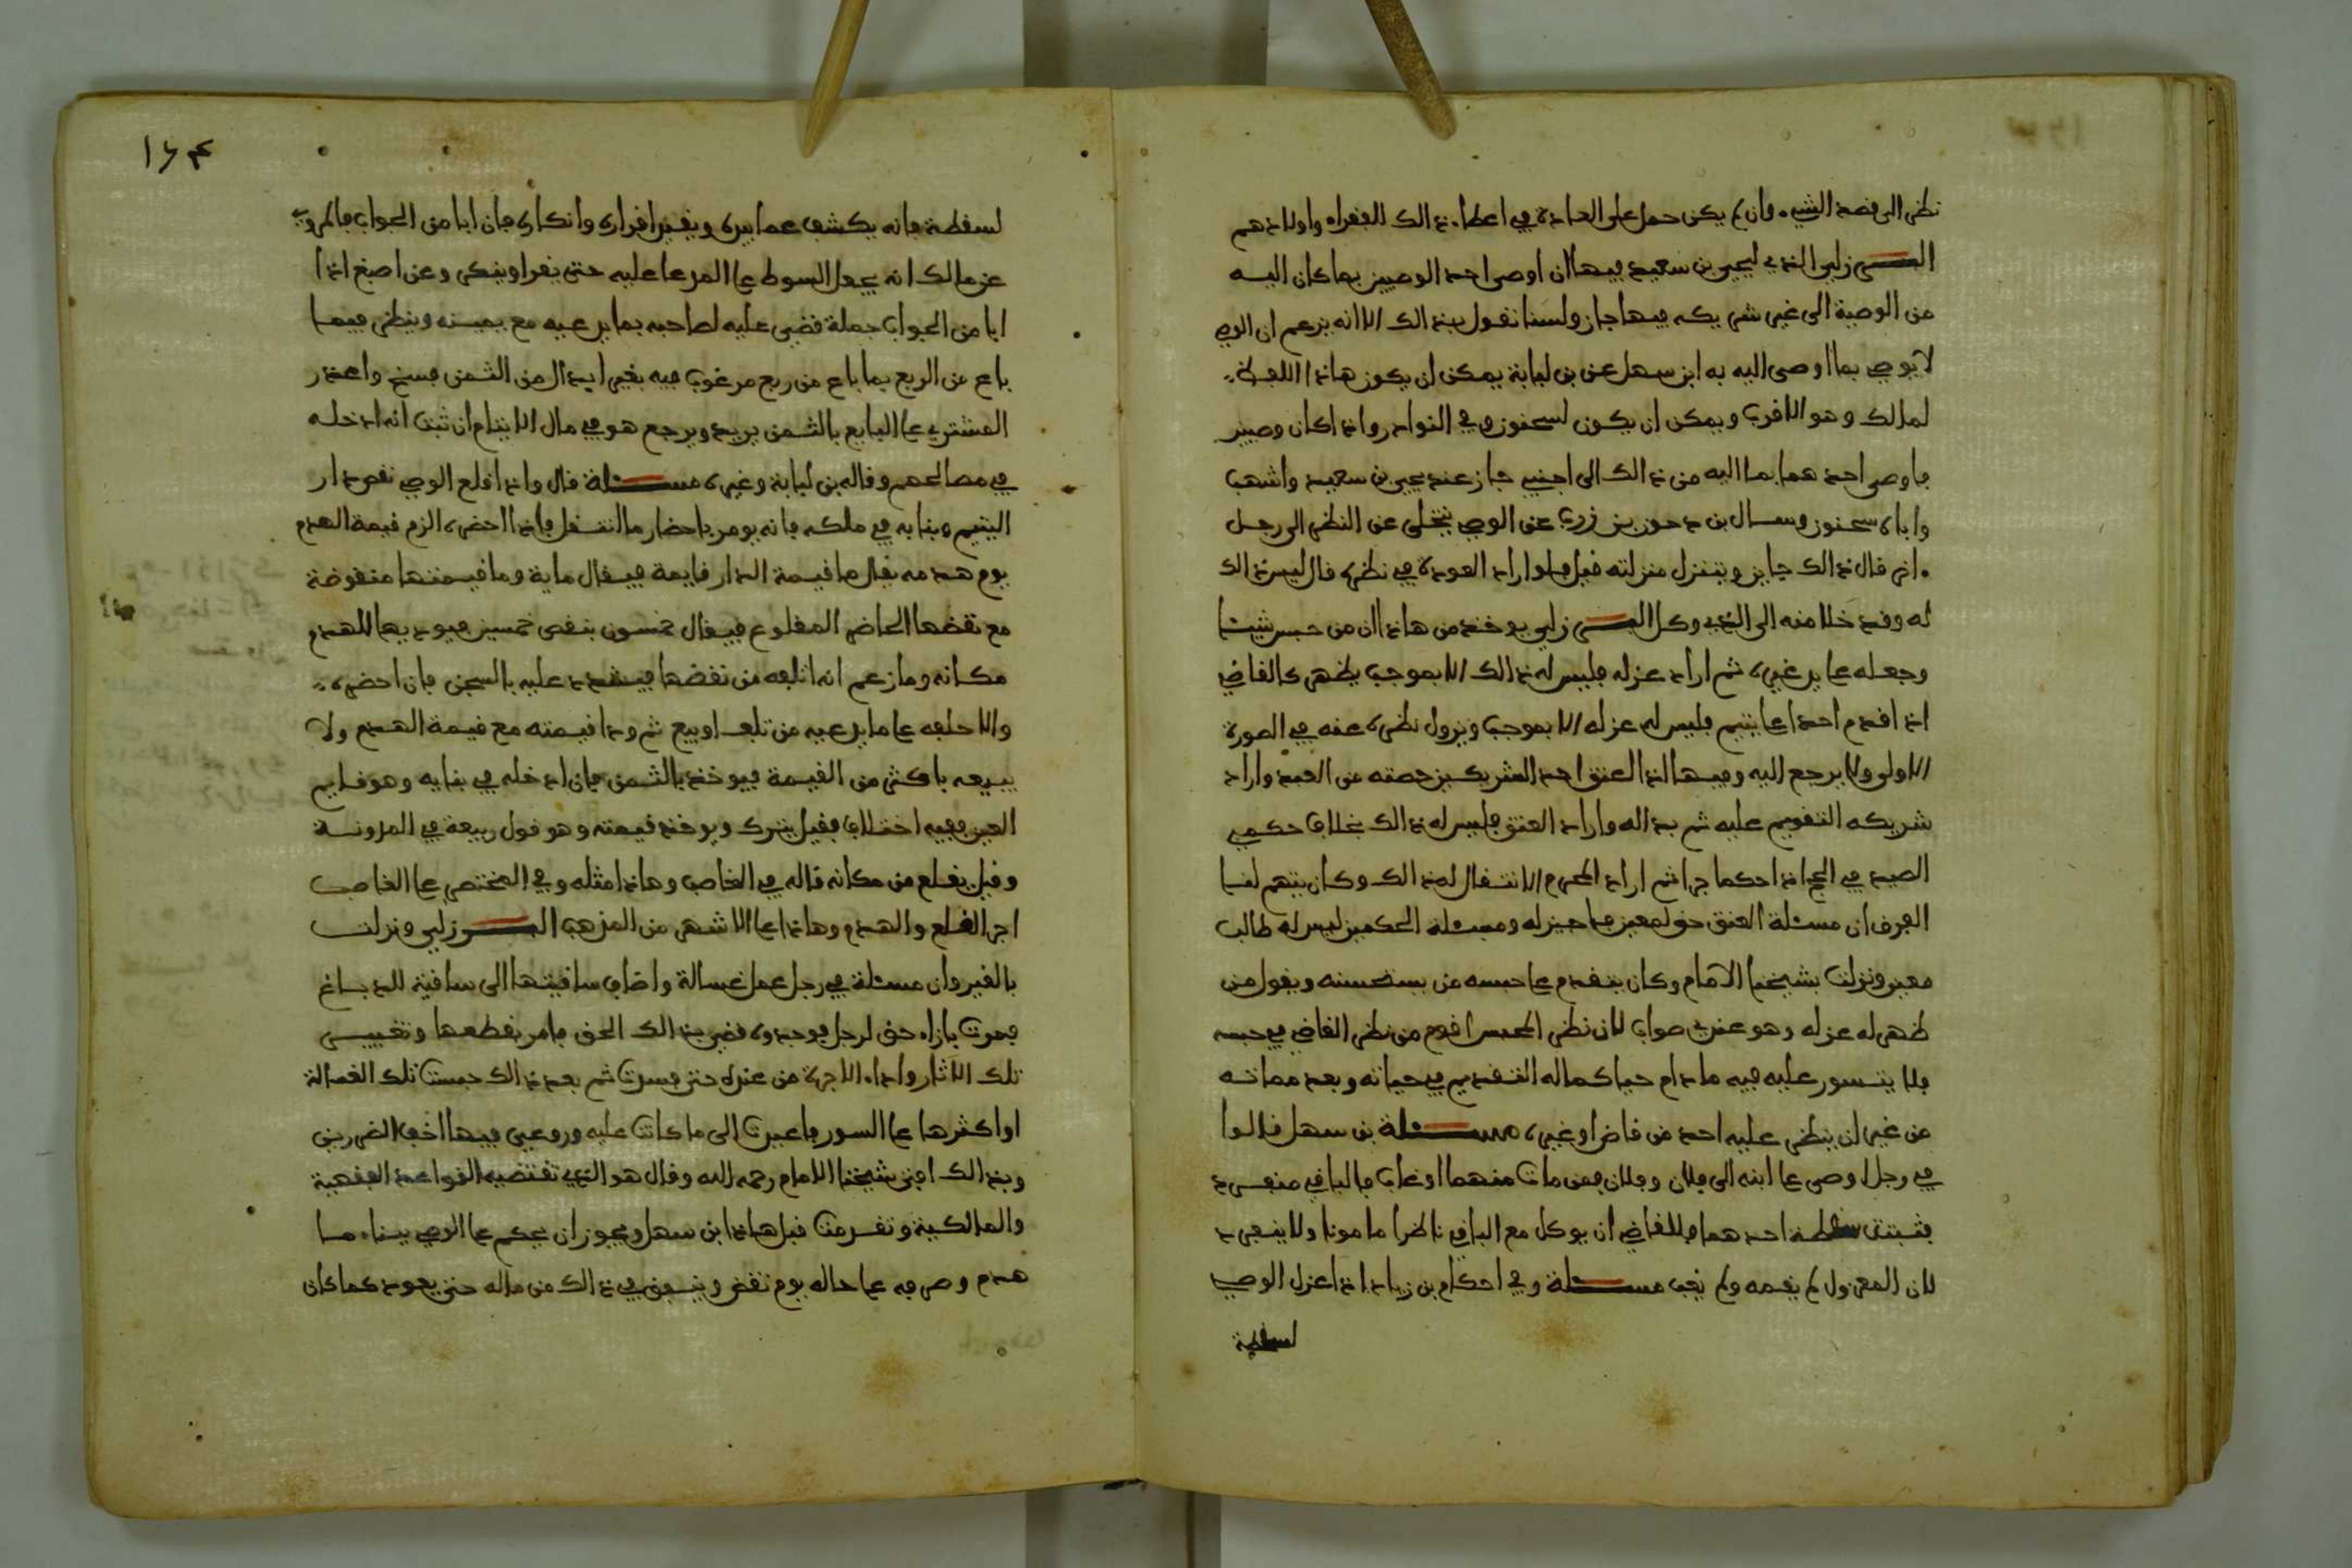 نظر الى قصد الشيء فان لم يكن حمل على العادة في اعطاء ذالك للفقراء واولادهم
البرزلي الذي ليحيى بن سعيد فيها ان اوصى احد الوصيين بما كان اليه
من الوصية الى غير شريكه فيها جاز ولسنا نقول بذالك الا انه يزعم ان الوصي
لا يوصي بما اوصى اليه به ابن سهل عن بن لبابة يمكن ان يكون هاذا اللفظ
لمالك وهو الاقرب ويمكن ان يكون لسحنون وفي النوادر واذا كان وصيين
فاوصى احدهما بما اليه من ذالك الى اجنبي جاز عند يحيى بن سعيد واشهب
واباه سحنون وسال بن دحون بن زرب عن الوصي يتخلى عن النظر الى رجل
اخر قال ذالك جايز ويتنزل منزلته قيل فلو اراد العودة في نظره قال ليس ذالك
له وقد خلا منه الى الذي وكل البرزلي يوخذ من هاذا ان من حبس شيئا
وجعله على يد غيره ثم اراد عزله فليس له ذالك الا بموجب يظهر كالقاضي
اذا قدم احدا على يتيم فليس له عزله الا بموجب ويزول نظره عنه في الصورة
الاولى ولا يرجع اليه وفيها اذا اعتق احد الشريكين حصته من العبد واراد
شريكه التقويم عليه ثم بدا له واراد العتق فليس له ذالك بخلاف حكمي
الصيد في الحج اذا حكما جزا ثم اراد المحرم الانتقال له ذالك وكان يتقدم لنا
الفرق ان مسئلة العتق حق لمعين فيما خير له ومسئلة الحكمين ليس له طالب
معين ونزلت بشيخنا الامام وكان يتقدم على حبسه من يستحسنه ويقول من
ظهر له عزله وهو عندي صواب لان نظر المحبس اقوم من نظر القاضي في حبسه
فلا يتسور عليه فيه ما دام حيا كما له التقديم في حياته وبعد مماته
من غير ان ينظر عليه احد من قاض او غيره مسئلة بن سهل قالوا
في رجل اوصى على ابنه الى فلان وفلان فمن مات منهما او غاب فالباقي منفرد
فثبتت سخطة احدهما فللقاضي ان يوكل مع الباقي ناظرا مامونا ولا ينفرد
لان المعزول لم يقمه ولم يغب مسئلة وفي احكام بن زياد اذا عزل الوصي
لسخطة
١٦٣
لسخطة فانه يكشف عما بيده ويقيد اقراره وانكاره فان ابا من الجواب فالمروي
عن مالك انه يجعل السوط على المدعا عليه حتى يقر او ينكر وعن اصبغ اذا
ابا من الجواب جملة قضي عليه لصاحبه بما يدعيه مع يمينه وينظر فيما
باع من الربع فما باع من ربع مرغوب فيه بغير ابدال من الثمن فسخ واعذر
المشتري على البايع بالثمن يريد ويرجع هو في مال الايتام ان ثبت انه ادخله
في مصالحهم وقاله بن لبابة وغيره مسئلة قال واذا قلع الوصي نقض دار
اليتيم وبنا به في ملكه فانه يومر باحضار ما انتقل فاذا احضره الزم قيمة الهدم
يوم هدمه يقال ما قيمة الدار قايمة فيقال ماية وما قيمتها منقوضة
مع نقضها الحاضر المقلوع فيقال خمسون بنقص خمسين فيوديها للهدم
مكانه وما زعم انه اتلفه من نقضها فيشدد عليه بالسجن فان احضره
والا حلفه على ما يدعيه من تلف او بيع ثم ودا قيمته مع قيمة الهدم ولا
يبيعه باكثر من القيمة فيوخذ بالثمن فان ادخله في بنايه وهو قايم
العين ففيه اختلاف فقيل يترك ويوخذ قيمته وهو قول ربيعة في المدونة
وقيل يقلع من مكانه قاله في الغاصب وهاذا مثله وفي المختصر على الغاصب
اجر القلع والهدم وهاذا على الاشهر من المذهب البرزلي ونزلت
بالقيروان مسئلة في رجل عمل غسالة واضاف ساقيتها الى ساقية للدباغ
فمرت بازاء حق لرجل فوجدوه فضر بذالك الحق فامر بقطعها وتغيير
تلك الاثار واداء الاجرة من عنده حتى يسرت ثم بعد ذالك حبست تلك الغسالة
او اكثرها على السور فاعيدت الى ما كانت عليه وروعي فيها اخف الضررين
وبذالك افتى شيخنا الامام رحمه الله وقال هو الذي تقتضيه القواعد الفقهية
والمالكية وتقدمت قبل هاذا ابن سهل ويجوز ان يحكم على الوصي ببناء ما
هدم وصرفه على حاله يوم نقض وينفق في ذالك من ماله حتى يعود كما كان